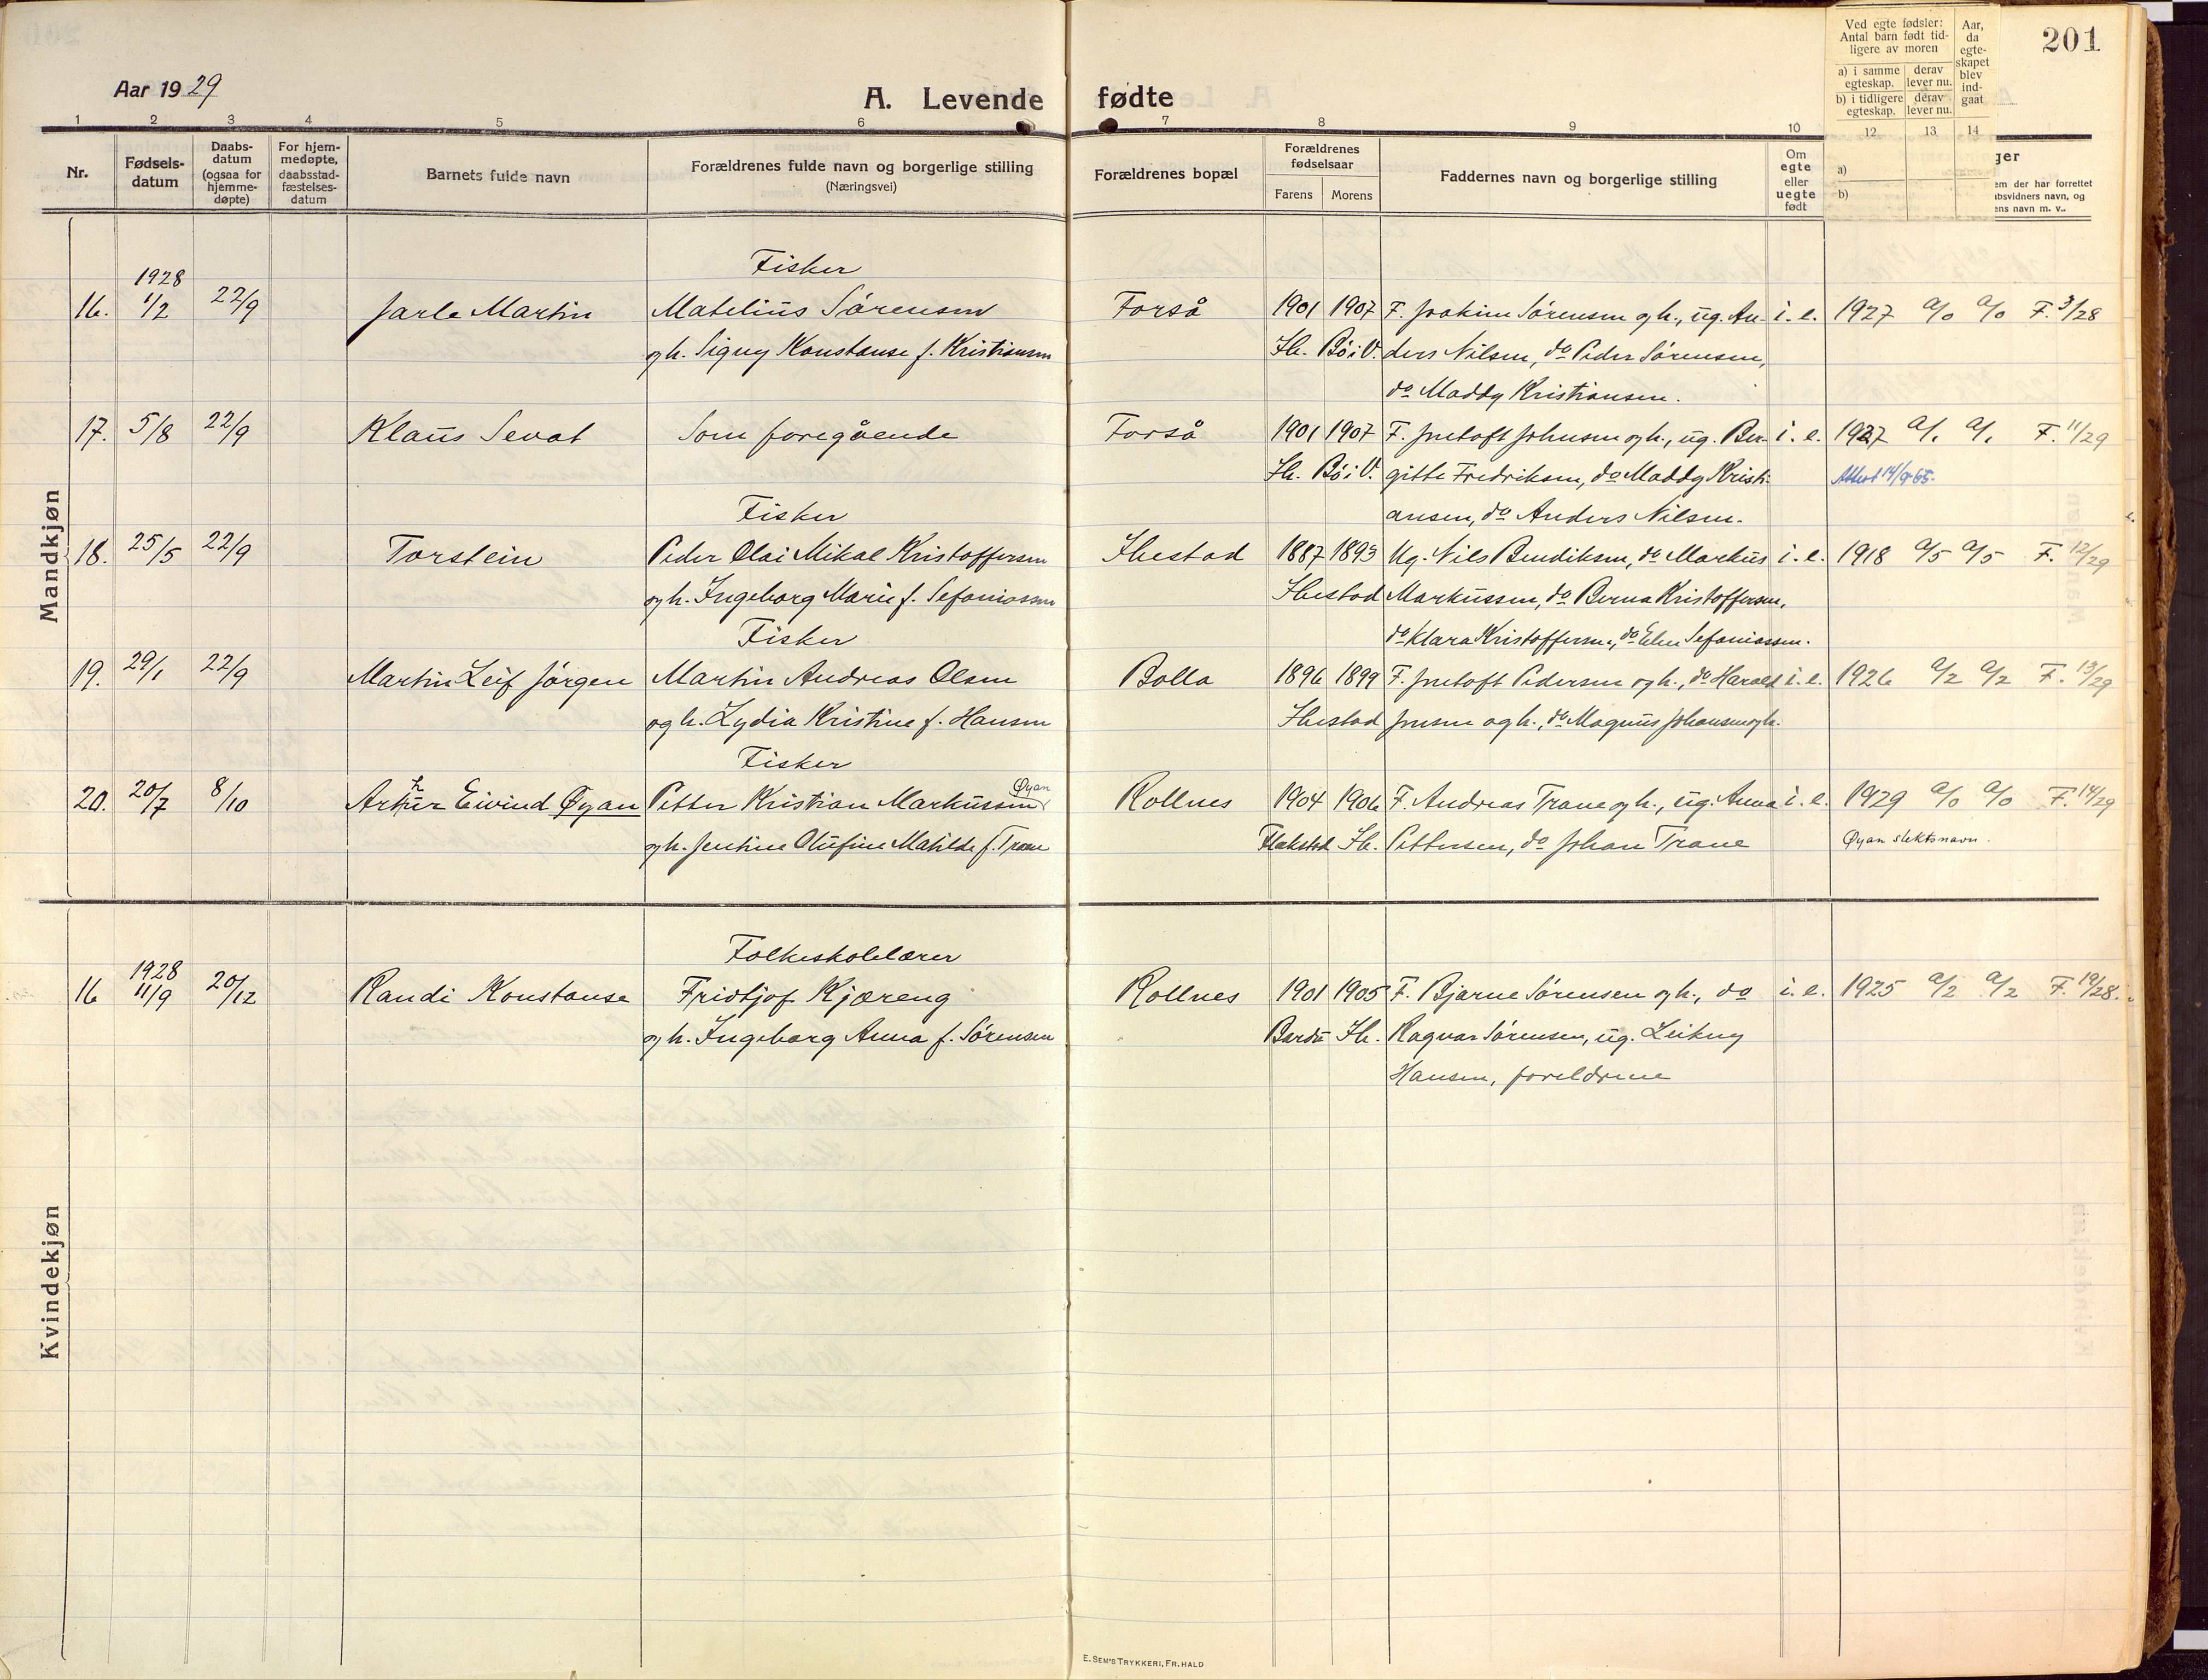 201
Aar 1929
A. Levende fødte
1 2 3 4 5 6 7 8 9 10
Nr.
Fødselsdatum
Daabsdatum (ogsaa for hjemmedøpte)
For hjemmedøpte, daabsstadfæstelsesdatum
Barnets fulde navn
Forældrenes fulde navn og borgerlige stilling
(Næringsvei)
Forældrenes bopæl
Forældrenes fødselsaar
Farens Morens
Faddernes navn og borgerlige stilling
Om egte eller uegte født
Ved egte fødsler:
Antal barn født tidligere av moren
a) i samme egteskap. derav lever nu.
b) i tidligere egteskap. derav lever nu.
Aar, da egteskapet blev indgaat
12 13 14
a)
b)
ger
em der har forrettet
absvidners navn, og
ens navn m. v..
Mandkjøn
Fisker
1928
16. 1/2 22/9 Jarle Martin Matelius Sørensen Forså 1901 1907 F. Joakim Sørensen og h., ug. An- i. e. 1927 a/0 a/0 F. 3/28
og h. Signy Konstanse f. Kristiansen Ib. Bø i V. ders Nilsen, do Peder Sørensen,
do Maddy Kristiansen.
17. 5/8 22/9 Klaus Sevat Som foregående Forså 1901 1907 F. Jentoft Johnsen og h., ug. Ber- i. e. 1927 a/1 a/1 F. 11/29
Ib. Bø i V. gitte Fredriksen, do Maddy Kristi- Attest 14/9-65.
Fisker ansen, do Anders Nilsen.
18. 25/5 22/9 Torstein Peder Olai Mikal Kristoffersen Ibestad 1887 1893 Ug. Nils Bendiksen, do Markus i. e. 1918 a/5 a/5 F. 12/29
og h. Ingeborg Marie f. Sefaniassen Ibestad Markussen, do Berna Kristoffersen,
Fisker do Klara Kristoffersen, do Elen Sefaniassen.
19. 29/1 22/9 Martin Leif Jørgen Martin Andreas Olsen Bolla 1896 1899 F. Jentoft Pedersen og h., do Harald i. e. 1926 a/2 a/2 F. 13/29
og h. Lydia Kristine f. Hansen Ibestad Jensen og h., do Magnus Johansen og h.
Fisker
20. 20/7 8/10 Arthur Eivind Øyan Petter Kristian Markussen Øyan Rollnes 1904 1906 F. Andreas Trane og h., ug. Anna i. e. 1929 a/0 a/0 F. 14/29
og h. Jentine Olufine Matilde f. Trane Flakstad Ib. Pettersen, do Johan Trane Øyan slektsnavn.
Kvindekjøn
Folkeskolelærer
1928
16 11/9 20/12 Randi Konstanse Fridtjof Kjæreng Rollnes 1901 1905 F. Bjarne Sørensen og h., do i. e. 1925 a/2 a/2 F. 19/28.
og h. Ingeborg Anna f. Sørensen Bardu Ib. Ragnar Sørensen, ug. Leikny
Hansen, foreldrene
E. SEM'S TRYKKERI, FR. HALD